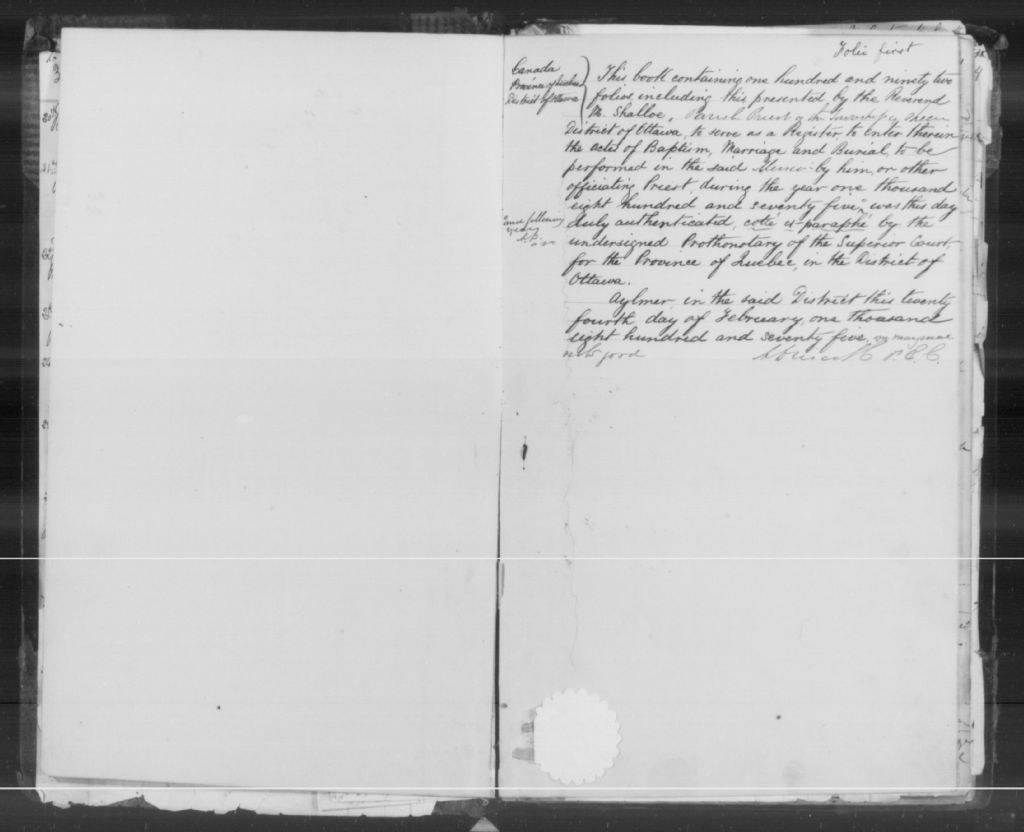 Folio first
Canada
Province of Quebec
District of Ottawa
This book containing one hundred and ninety two
folios, including this, presented by the Reverend
M. Shalloe, Parish Priest of the Township of Sheen
District of Ottawa, to serve as a Register to Enter therein
the actes of Baptism, Marriage and Burial, to be
performed in the said by him, or other
officiating Priest, during the year one thousand
eight hundred and seventy five, was this day
and following
years
duly authenticated, coté et paraphé by the
undersigned Prothonotary of the Superior Court
for the Province of Quebec, in the District of
Ottawa.
Aylmer in the said District this twenty
fourth day of February, one thousand
eight hundred and seventy five,
good